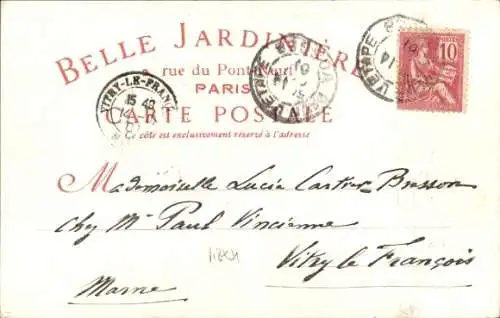 BELLE JARDINIÈRE
2, rue du Pont-Neuf
PARIS
CARTE POSTALE
Ce côté est exclusivement réservé à l'adresse
VITRY-LE-FRANÇ
15 40
10
Mademoiselle Lucie Bresson
chez Mr Paul Vincienne
Vitry le François
Marne